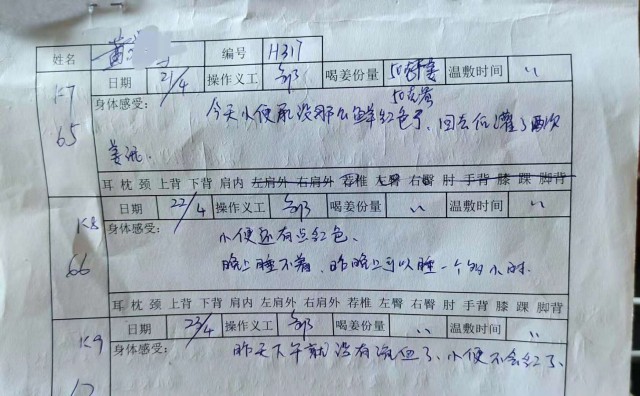 姓名 黄 编号 H317
K7 日期 21/4 操作义工 邹 喝姜份量 50克干姜 温敷时间 〃
50克黄
65 身体感受: 今天小便就没那么鲜红色了、回去后灌了两次
姜汤.
耳 枕 颈 上背 下背 肩内 左肩外 右肩外 荐椎 左臀 右臀 肘 手背 膝 踝 脚背
K8 日期 22/4 操作义工 邹 喝姜份量 〃 温敷时间 〃
身体感受: 小便还有点红色、
66 晚上睡不着, 昨晚上可以睡一个多小时.
耳 枕 颈 上背 下背 肩内 左肩外 右肩外 荐椎 左臀 右臀 肘 手背 膝 踝 脚背
K9 日期 23/4 操作义工 邹 喝姜份量 〃 温敷时间 〃
身体感受: 昨天下午就没有流血了、小便不会红了、